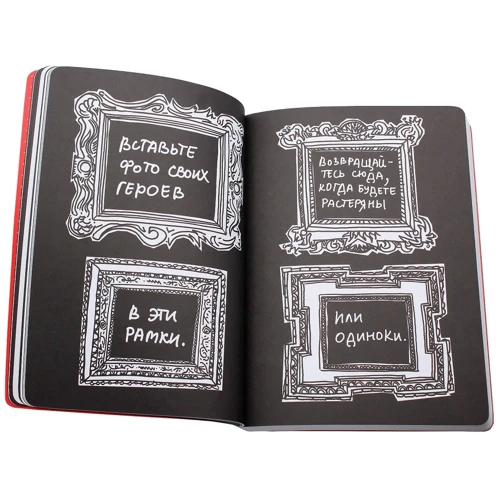 ВСТАВЬТЕ
ФОТО СВОИХ
ГЕРОЕВ
В ЭТИ
РАМКИ.
ВОЗВРАЩАЙ-
ТЕСЬ СЮДА,
КОГДА БУДЕТЕ
РАСТЕРЯНЫ
ИЛИ
ОДИНОКИ.